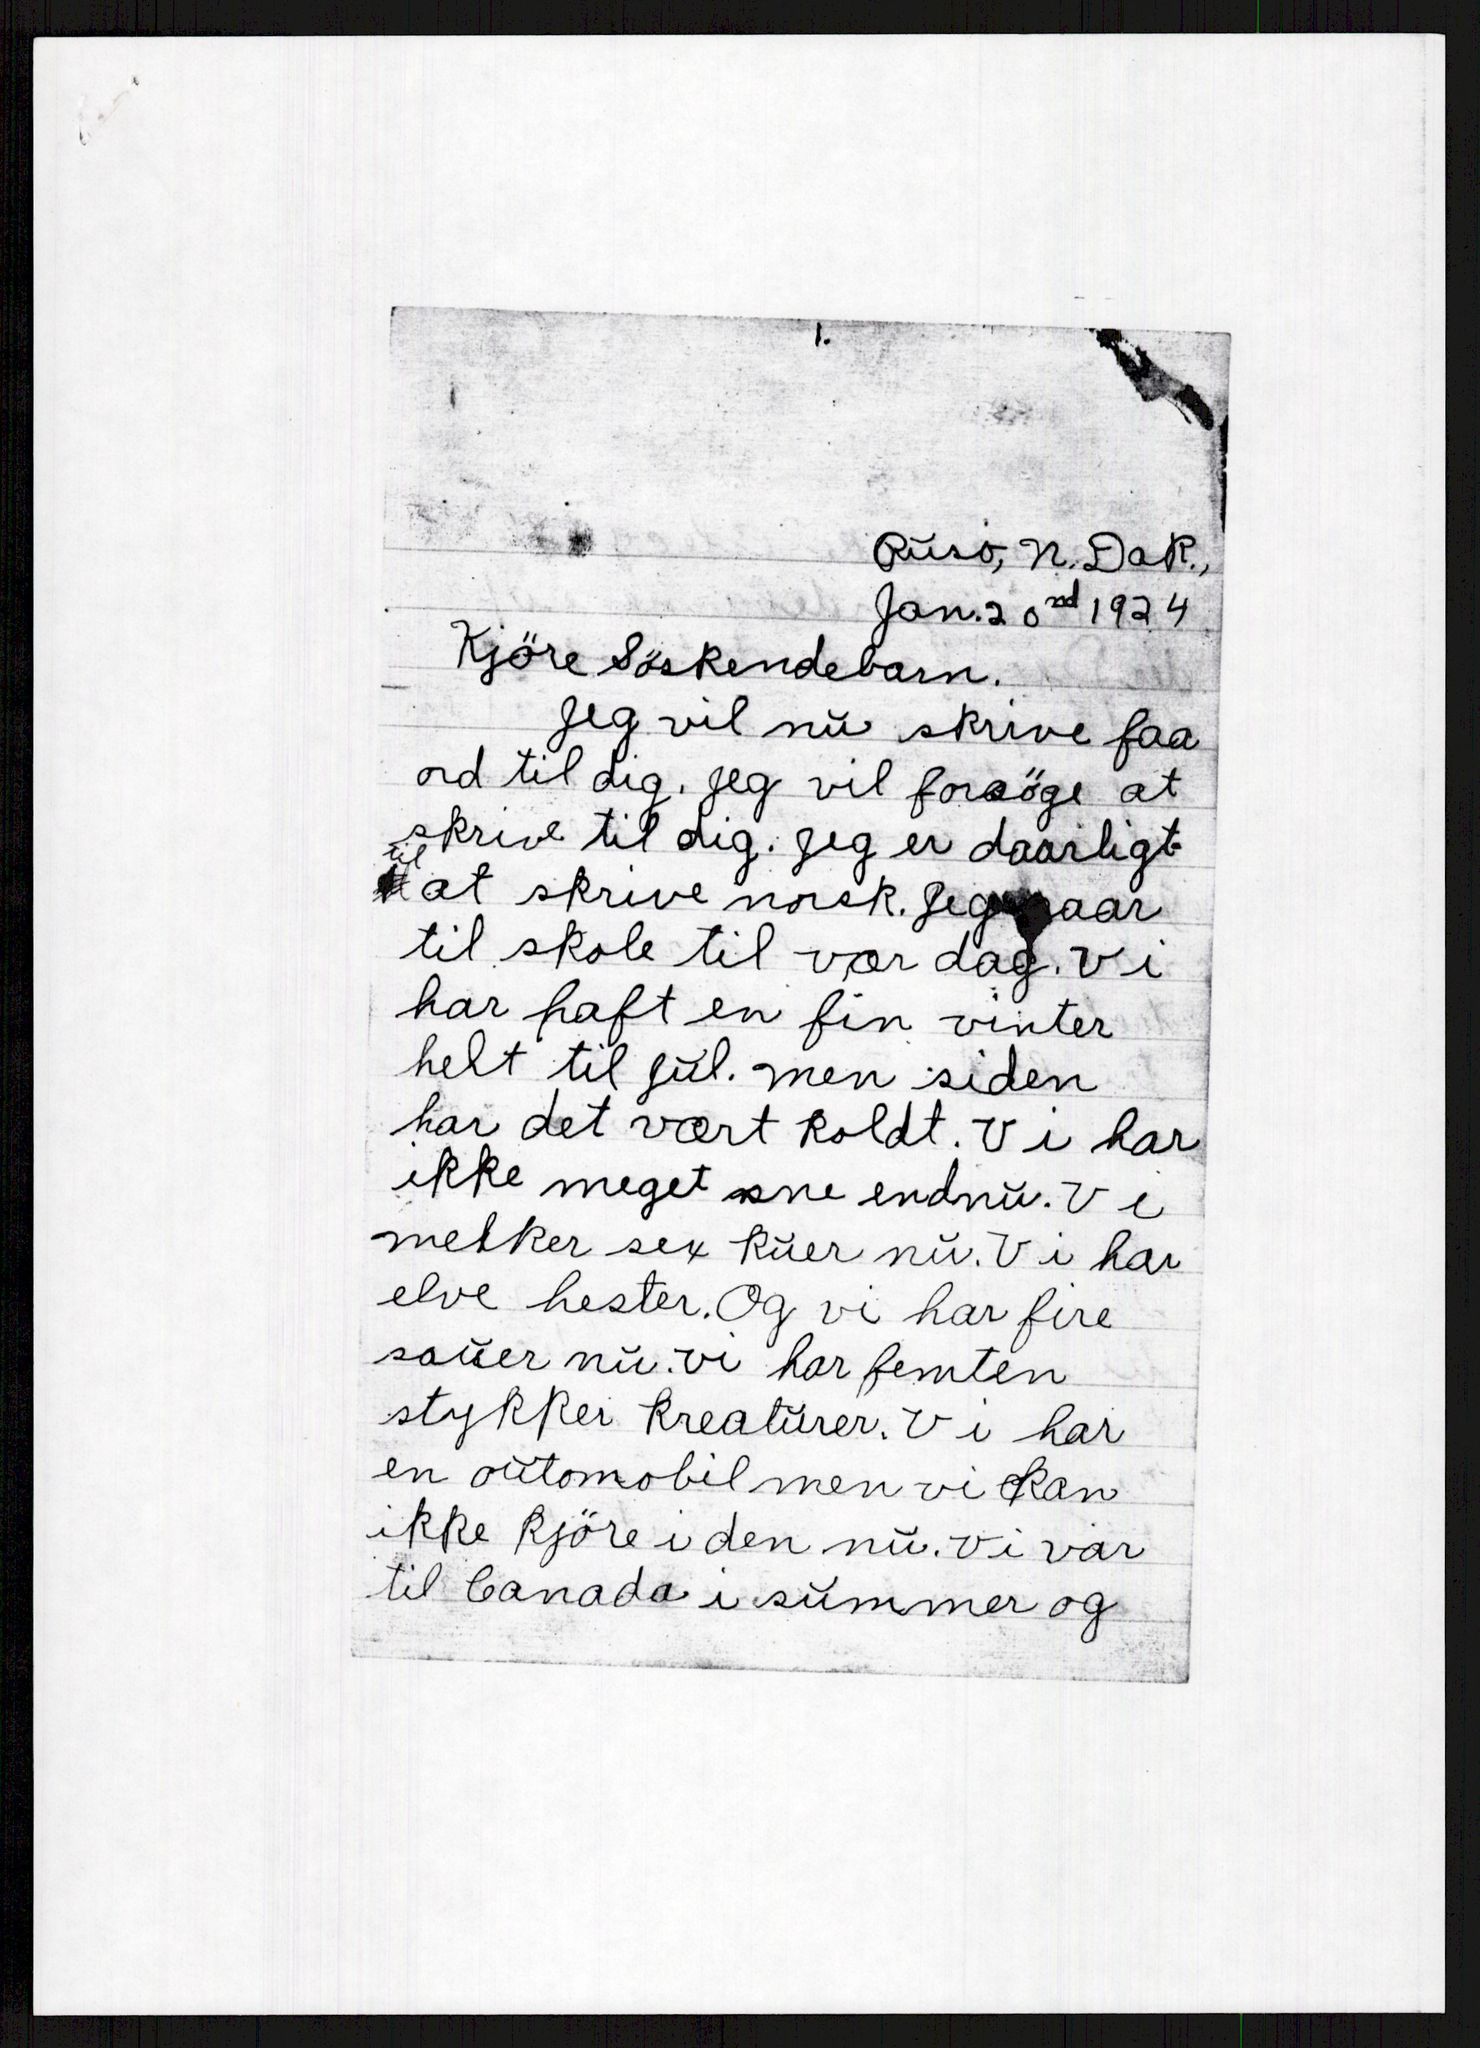 1.
Rusö, N. Dak.,
Jan. 20nd 1924
Kjöre Söskendebarn.
Jeg vil nŭ skrive faa
ord til dig. Jeg vil forsöge at
skrive til dig. Jeg er daarligt
til
at skrive norsk. Jeg gaar
til skole til vor dag. Vi
har haft en fin vinter
helt til Jŭl. men siden
har det vært koldt. Vi har
ikke meget sne endnŭ. Vi
melker sex kŭer nŭ. Vi har
elve hester. Og vi har fire
saŭer nŭ. Vi har femten
stykker kreatŭrer. Vi har
en aŭtomobil men vi kan
ikke kjöre i den nŭ. Vi var
til Canada i sŭmmer og